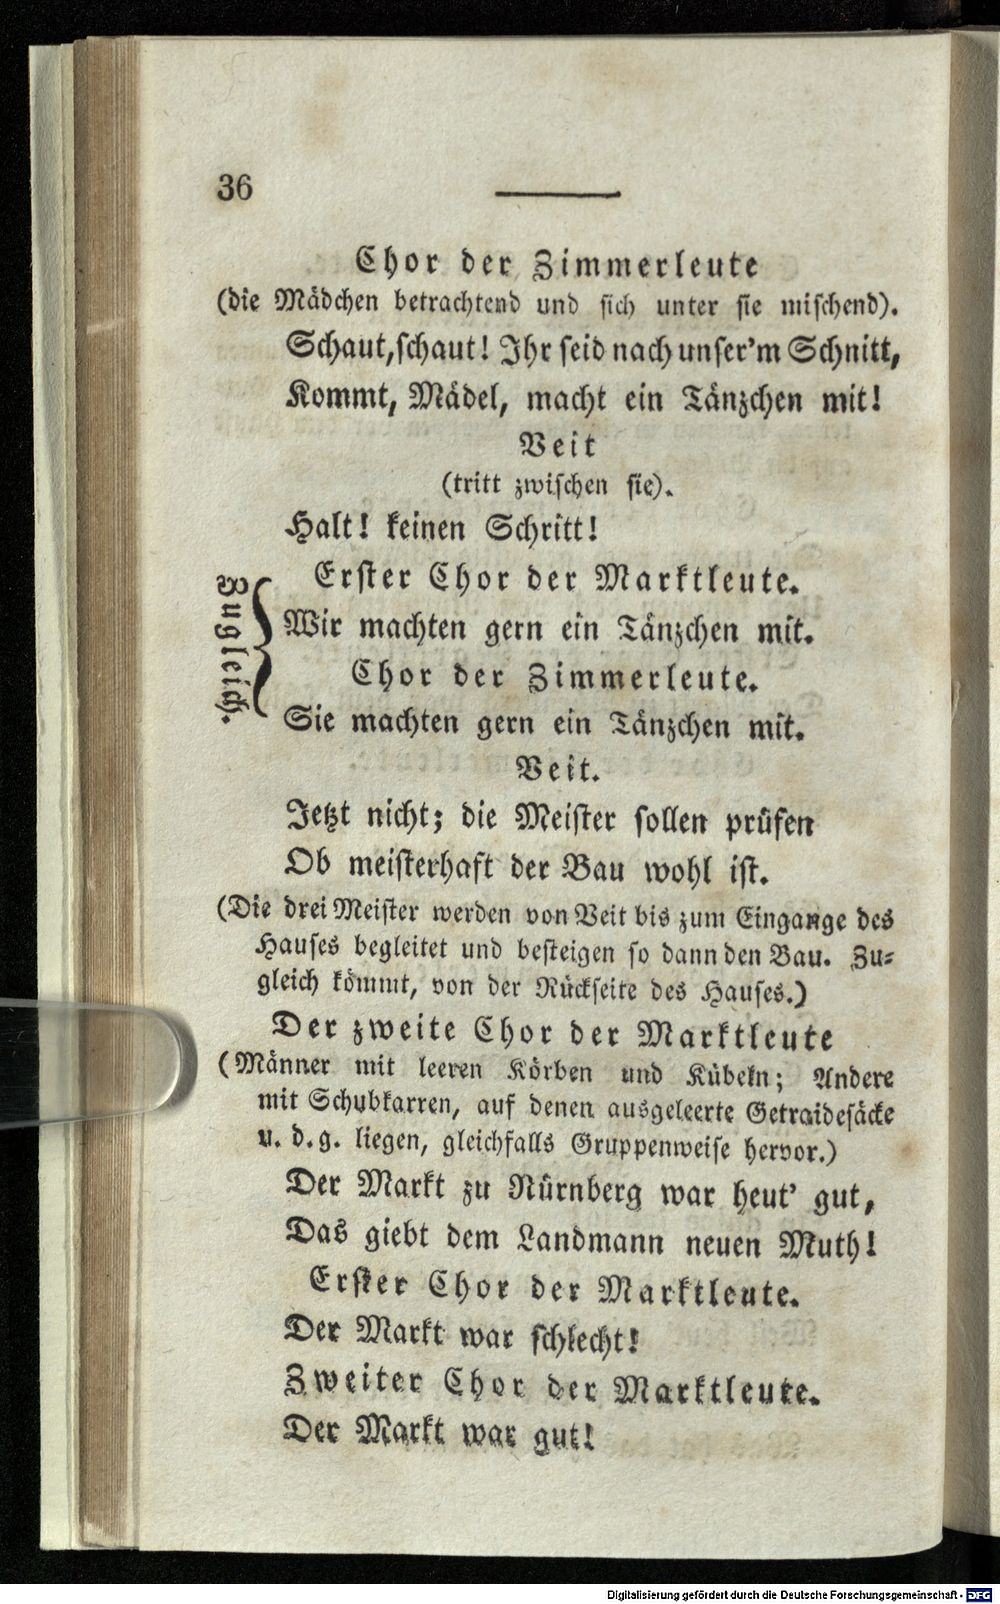 36
Chor der Zimmerleute
(die Mädchen betrachtend und sich unter sie mischend).
Schaut, schaut! Ihr seid nach unser'm Schnitt,
Kommt, Mädel, macht ein Tänzchen mit!
Veit
(tritt zwischen sie).
Halt! keinen Schritt!
Zugleich.
Erster Chor der Marktleute.
Wir machten gern ein Tänzchen mit.
Chor der Zimmerleute.
Sie machten gern ein Tänzchen mit.
Veit.
Jetzt nicht; die Meister sollen prüfen
Ob meisterhaft der Bau wohl ist.
(Die drei Meister werden von Veit bis zum Eingange des
Hauses begleitet und besteigen so dann den Bau. Zu-
gleich kömmt, von der Rückseite des Hauses.)
Der zweite Chor der Marktleute
(Männer mit leeren Körben und Kübeln; Andere
mit Schubkarren, auf denen ausgeleerte Getraidesäcke
u. d. g. liegen, gleichfalls Gruppenweise hervor.)
Der Markt zu Nürnberg war heut' gut,
Das giebt dem Landmann neuen Muth!
Erster Chor der Marktleute.
Der Markt war schlecht!
Zweiter Chor der Marktleute.
Der Markt war gut!
Digitalisierung gefördert durch die Deutsche Forschungsgemeinschaft - DFG